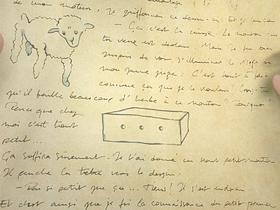 mouton, je griffonnai ce dessin. Et je lui
Ça c'est la caisse. Le mouton que
tu veux est dedans. Mais je fus
surpris de voir s'illuminer le visage de
mon jeune juge: C'est tout à fait
comme ça que je le voulais!
qu'il faille beaucoup d'herbe à ce mouton?
Parce que chez
moi c'est tout
petit...
Ça suffira sûrement. Je t'ai donné un tout petit mouton.
Il pencha la tête vers le dessin:
- Pas si petit que ça... Tiens! Il s'est endormi
Et c'est ainsi que je fis la connaissance du petit prince.